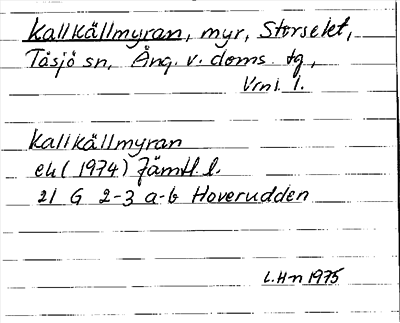 Kallkällmyran, myr, Storselet,
Tåsjö sn, Ång. v. doms. tg,
Vrnl. l.
Kallkällmyran
ek (1974) Jämtl. l.
21 G 2-3 a-b Hoverudden
L.Hn 1975